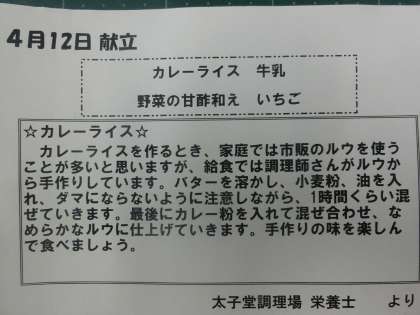 4月12日 献立
カレーライス 牛乳
野菜の甘酢和え いちご
☆カレーライス☆
カレーライスを作るとき、家庭では市販のルウを使う
ことが多いと思いますが、給食では調理師さんがルウか
ら手作りしています。バターを溶かし、小麦粉、油を入
れ、ダマにならないように注意しながら、1時間くらい混
ぜていきます。最後にカレー粉を入れて混ぜ合わせ、な
めらかなルウに仕上げていきます。手作りの味を楽しん
で食べましょう。
太子堂調理場 栄養士 より